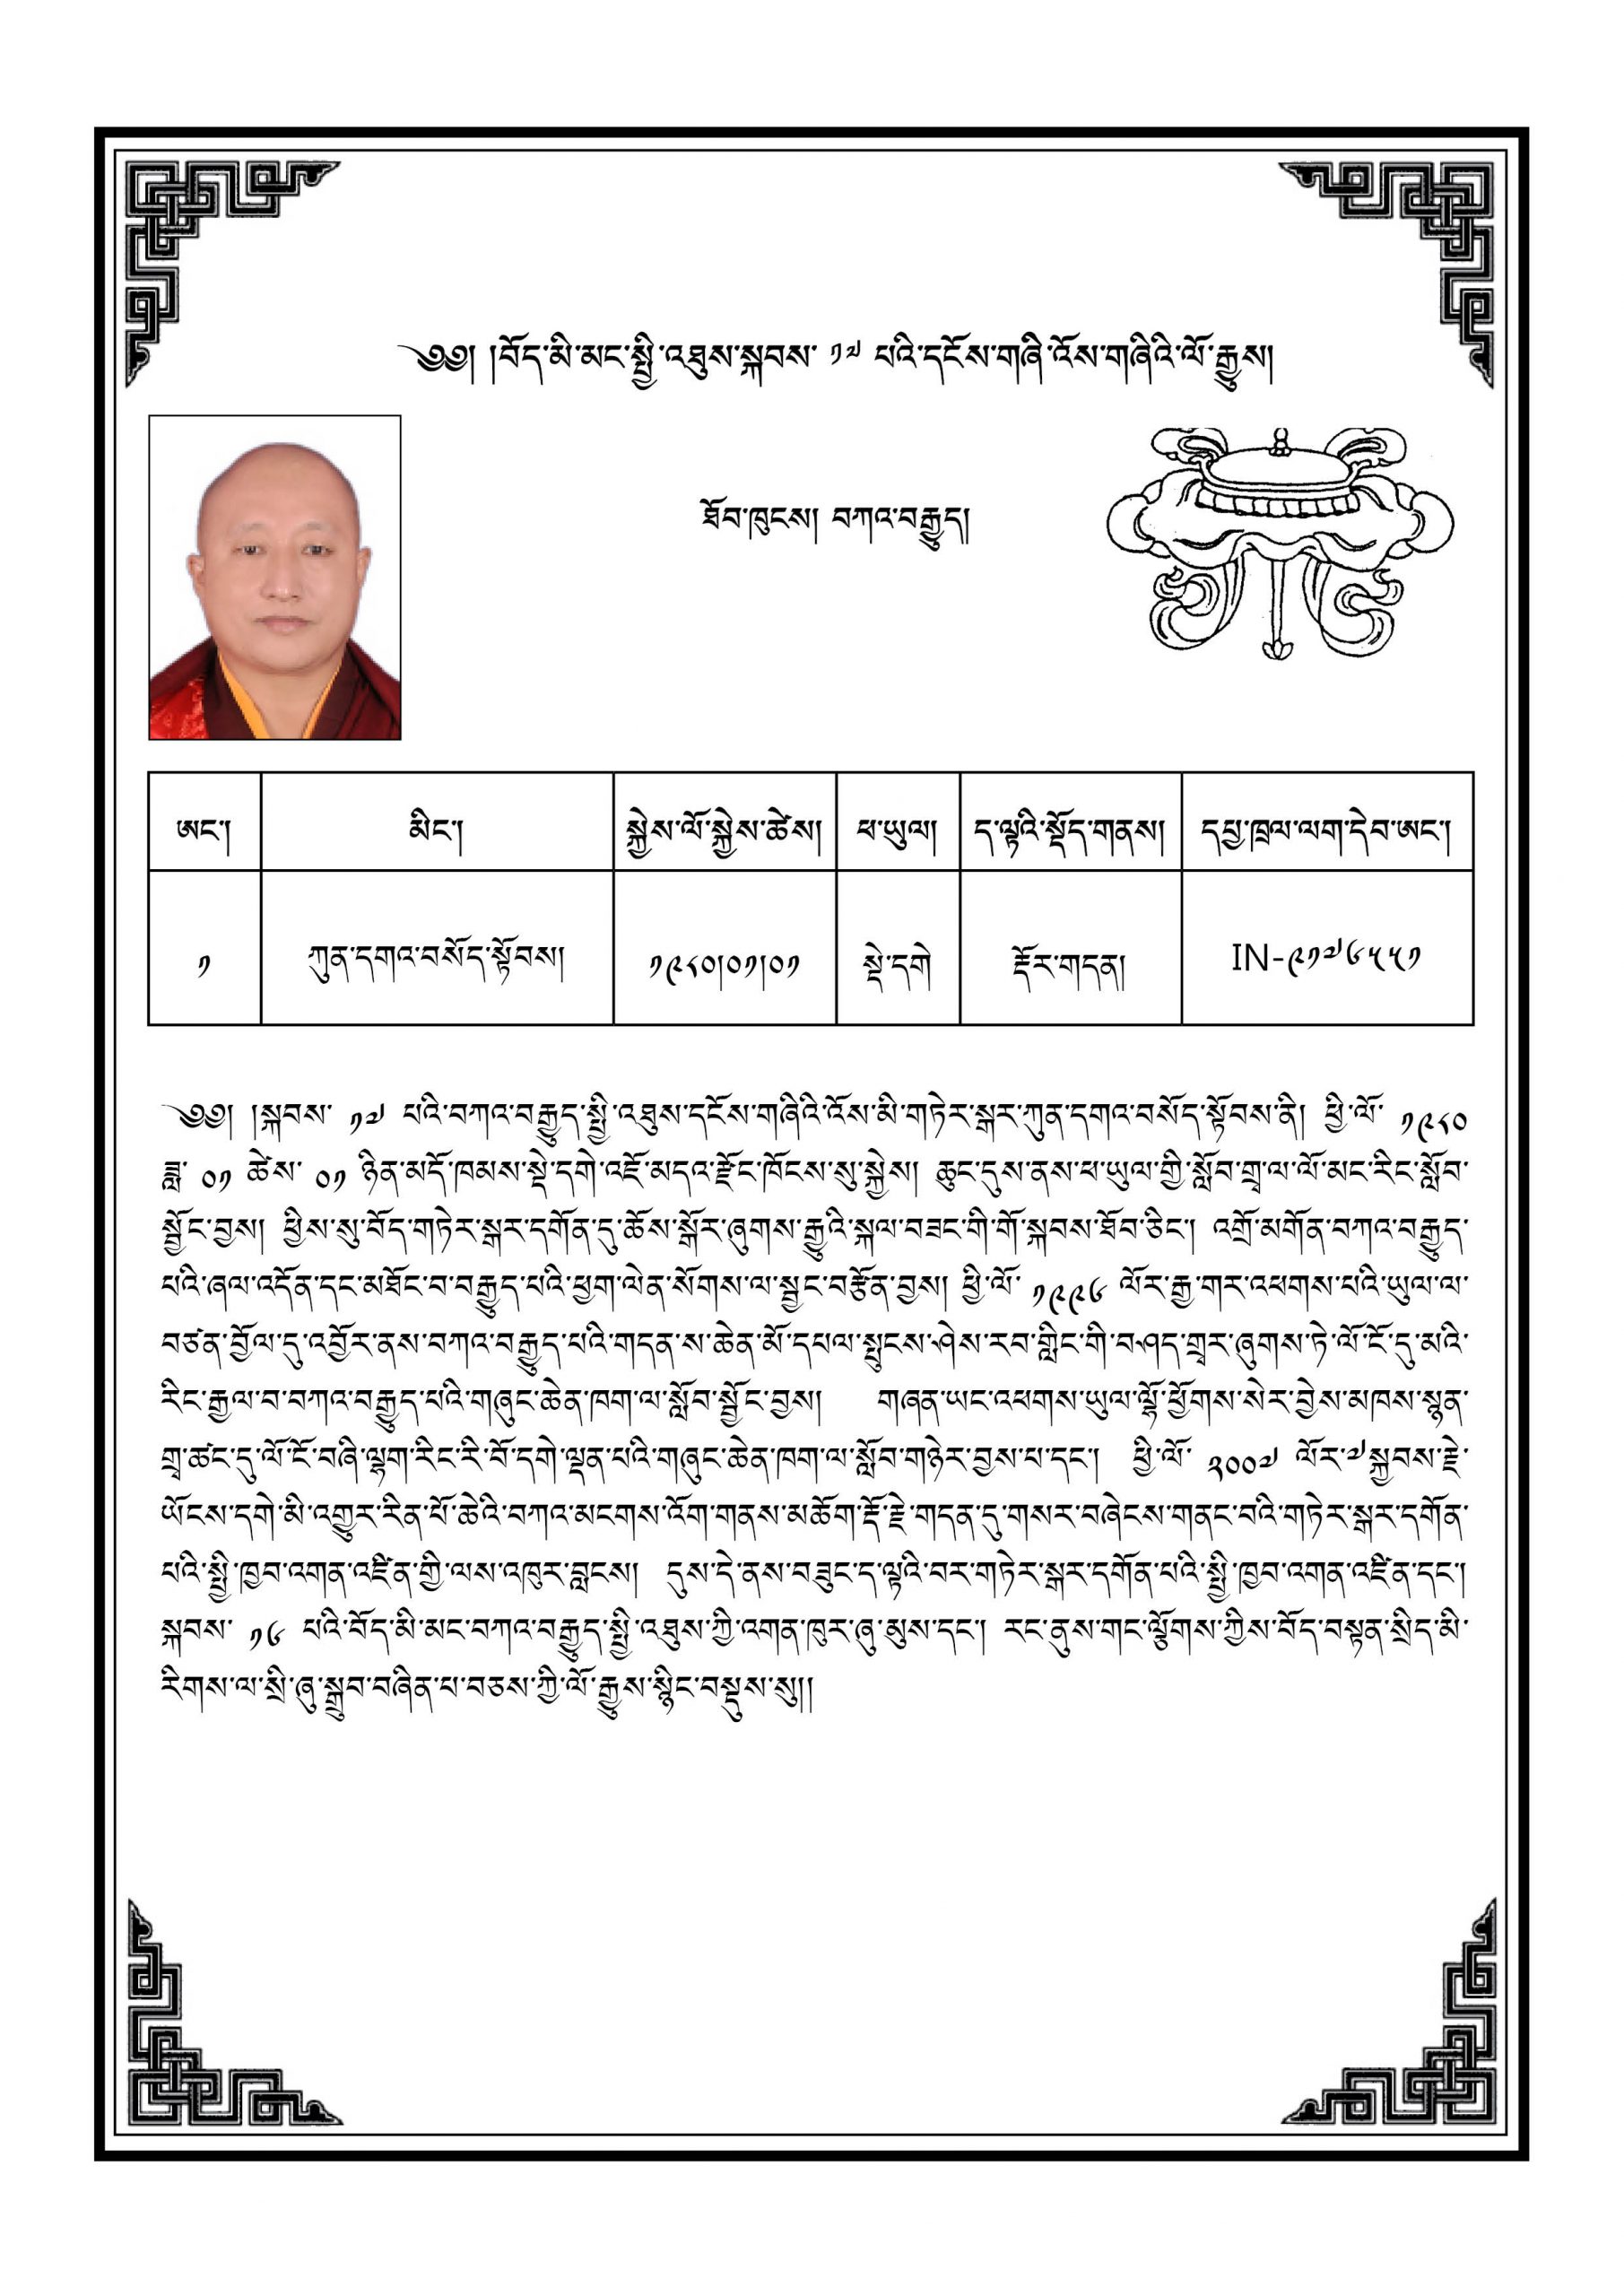 ༄༅། །བོད་མི་མང་སྤྱི་འཐུས་སྐབས་ ༡༧ པའི་དངོས་གཞི་འོས་གཞིའི་ལོ་རྒྱུས།
ཐོབ་ཁུངས། བཀའ་བརྒྱུད།
ཨང་། མིང་། སྐྱེས་ལོ་སྐྱེས་ཚེས། ཕ་ཡུལ། ད་ལྟའི་སྡོད་གནས། དཔྱ་ཁྲལ་ལག་དེབ་ཨང་།
༡ ཀུན་དགའ་བསོད་སྟོབས། ༡༩༨༠།༠༡།༠༡ སྡེ་དགེ རྡོར་གདན། IN-༩༡༧༦༥༥༡
༄༅། །སྐབས་ ༡༧ པའི་བཀའ་བརྒྱུད་སྤྱི་འཐུས་དངོས་གཞིའི་འོས་མི་གཏེར་སྒར་ཀུན་དགའ་བསོད་སྟོབས་ནི། ཕྱི་ལོ་ ༡༩༨༠
ཟླ་ ༠༡ ཚེས་ ༠༡ ཉིན་མདོ་ཁམས་སྡེ་དགེ་འཇོ་མདའ་རྫོང་ཁོངས་སུ་སྐྱེས། ཆུང་དུས་ནས་ཕ་ཡུལ་གྱི་སློབ་གྲྭ་ལ་ལོ་མང་རིང་སློབ་
སྦྱོང་བྱས། ཕྱིས་སུ་བོད་གཏེར་སྒར་དགོན་དུ་ཆོས་སྒོར་ཞུགས་རྒྱུའི་སྐལ་བཟང་གི་གོ་སྐབས་ཐོབ་ཅིང་། འགྲོ་མགོན་བཀའ་བརྒྱུད་
པའི་ཞལ་འདོན་དང་མཐོང་བ་བརྒྱུད་པའི་ཕྱག་ལེན་སོགས་ལ་སྦྱང་བརྩོན་བྱས། ཕྱི་ལོ་ ༡༩༩༦ ལོར་རྒྱ་གར་འཕགས་པའི་ཡུལ་ལ་
བཙན་བྱོལ་དུ་འབྱོར་ནས་བཀའ་བརྒྱུད་པའི་གདན་ས་ཆེན་མོ་དཔལ་སྤུངས་ཤེས་རབ་གླིང་གི་བཤད་གྲྭར་ཞུགས་ཏེ་ལོ་ངོ་དུ་མའི་
རིང་རྒྱལ་བ་བཀའ་བརྒྱུད་པའི་གཞུང་ཆེན་ཁག་ལ་སློབ་སྦྱོང་བྱས། གཞན་ཡང་འཕགས་ཡུལ་ལྷོ་ཕྱོགས་སེར་བྱེས་མཁས་སྙན་
གྲྭ་ཚང་དུ་ལོ་ངོ་བཞི་ལྷག་རིང་རི་བོ་དགེ་ལྡན་པའི་གཞུང་ཆེན་ཁག་ལ་སློབ་གཉེར་བྱས་པ་དང་། ཕྱི་ལོ་ ༢༠༠༧ ལོར་༧སྐྱབས་རྗེ་
ཡོངས་དགེ་མི་འགྱུར་རིན་པོ་ཆེའི་བཀའ་མངགས་འོག་གནས་མཆོག་རྡོ་རྗེ་གདན་དུ་གསར་བཞེངས་གནང་བའི་གཏེར་སྒར་དགོན་
པའི་སྤྱི་ཁྱབ་འགན་འཛིན་གྱི་ལས་འཁུར་བླངས། དུས་དེ་ནས་བཟུང་ད་ལྟའི་བར་གཏེར་སྒར་དགོན་པའི་སྤྱི་ཁྱབ་འགན་འཛིན་དང་།
སྐབས་ ༡༦ པའི་བོད་མི་མང་བཀའ་བརྒྱུད་སྤྱི་འཐུས་ཀྱི་འགན་ཁུར་ཞུ་མུས་དང་། རང་ནུས་གང་ལྕོགས་ཀྱིས་བོད་བསྟན་སྲིད་མི་
རིགས་ལ་སྲི་ཞུ་སྒྲུབ་བཞིན་པ་བཅས་ཀྱི་ལོ་རྒྱུས་སྙིང་བསྡུས་སུ།།